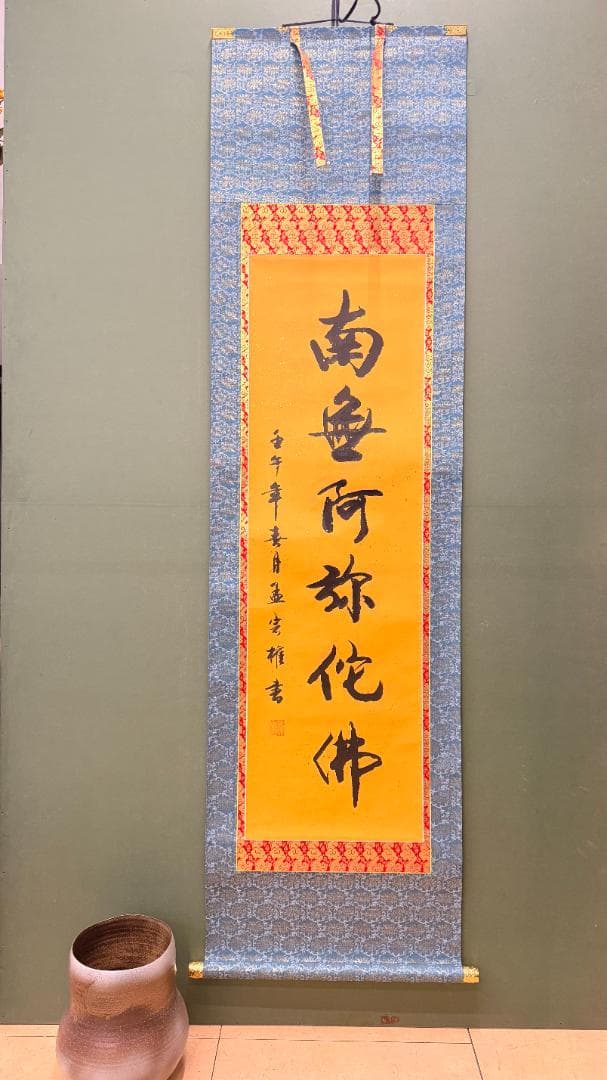 南無阿弥佗佛
壬午年春月孟宪權書